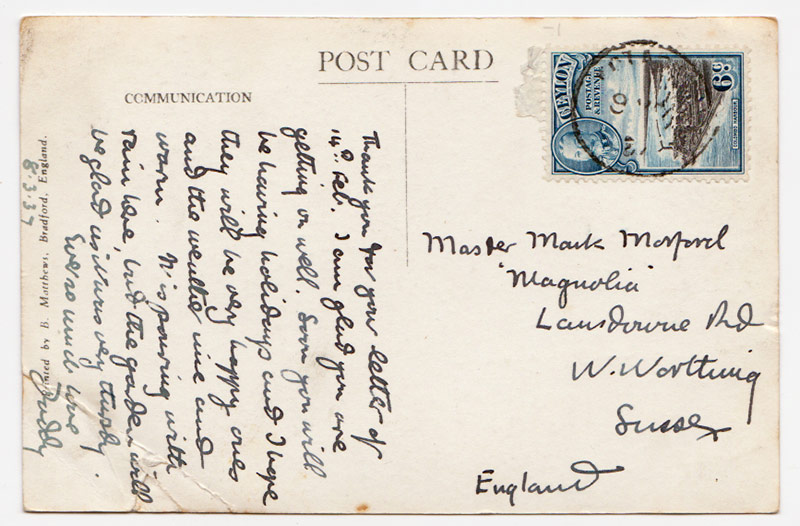 POST CARD
COMMUNICATION
Thank you for your letter of
14th Feb. I am glad you are
getting on well. Soon you will
be having holidays and I hope
they will be very happy ones
and the weather nice and
warm. It is pouring with
rain here, but the garden will
be glad as it was very thirsty.
Ever so much love
Daddy
8.3.37
Printed by B. Matthews, Bradford, England.
CEYLON
POSTAGE
& REVENUE
6c
COLOMBO HARBOUR
Master Mark Morford
"Magnolia"
Lansdowne Rd
W. Worthing
Sussex
England